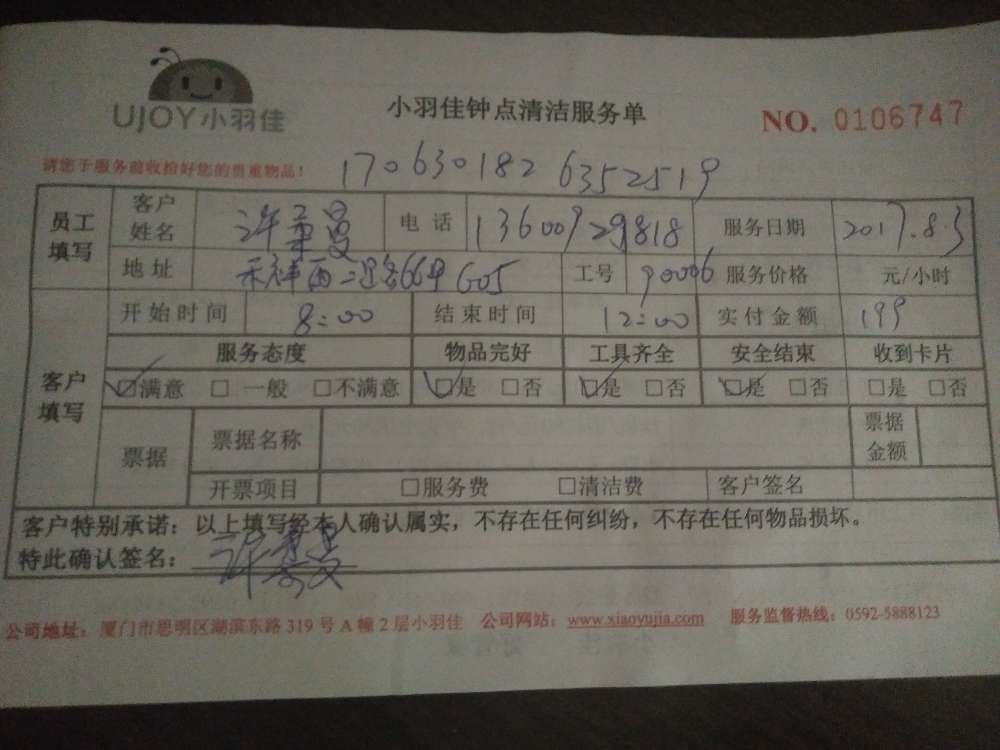 UJOY小羽佳
小羽佳钟点清洁服务单
NO. 0106747
请您于服务前收拾好您的贵重物品!
170630182 6352519
员工填写 客户姓名 许 曼 电话 13600929818 服务日期 2017.8.3
地址 禾祥西二路66号605 工号 90006 服务价格 元/小时
客户填写 开始时间 8:00 结束时间 12:00 实付金额 199
服务态度 物品完好 工具齐全 安全结束 收到卡片
☑满意 □一般 □不满意 ☑是 □否 ☑是 □否 ☑是 □否 □是 □否
票据 票据名称 票据金额
开票项目 □服务费 □清洁费 客户签名
客户特别承诺：以上填写经本人确认属实，不存在任何纠纷，不存在任何物品损坏。
特此确认签名：许 曼
公司地址：厦门市思明区湖滨东路 319 号 A 幢 2 层小羽佳 公司网站：www.xiaoyujia.com 服务监督热线：0592-5888123